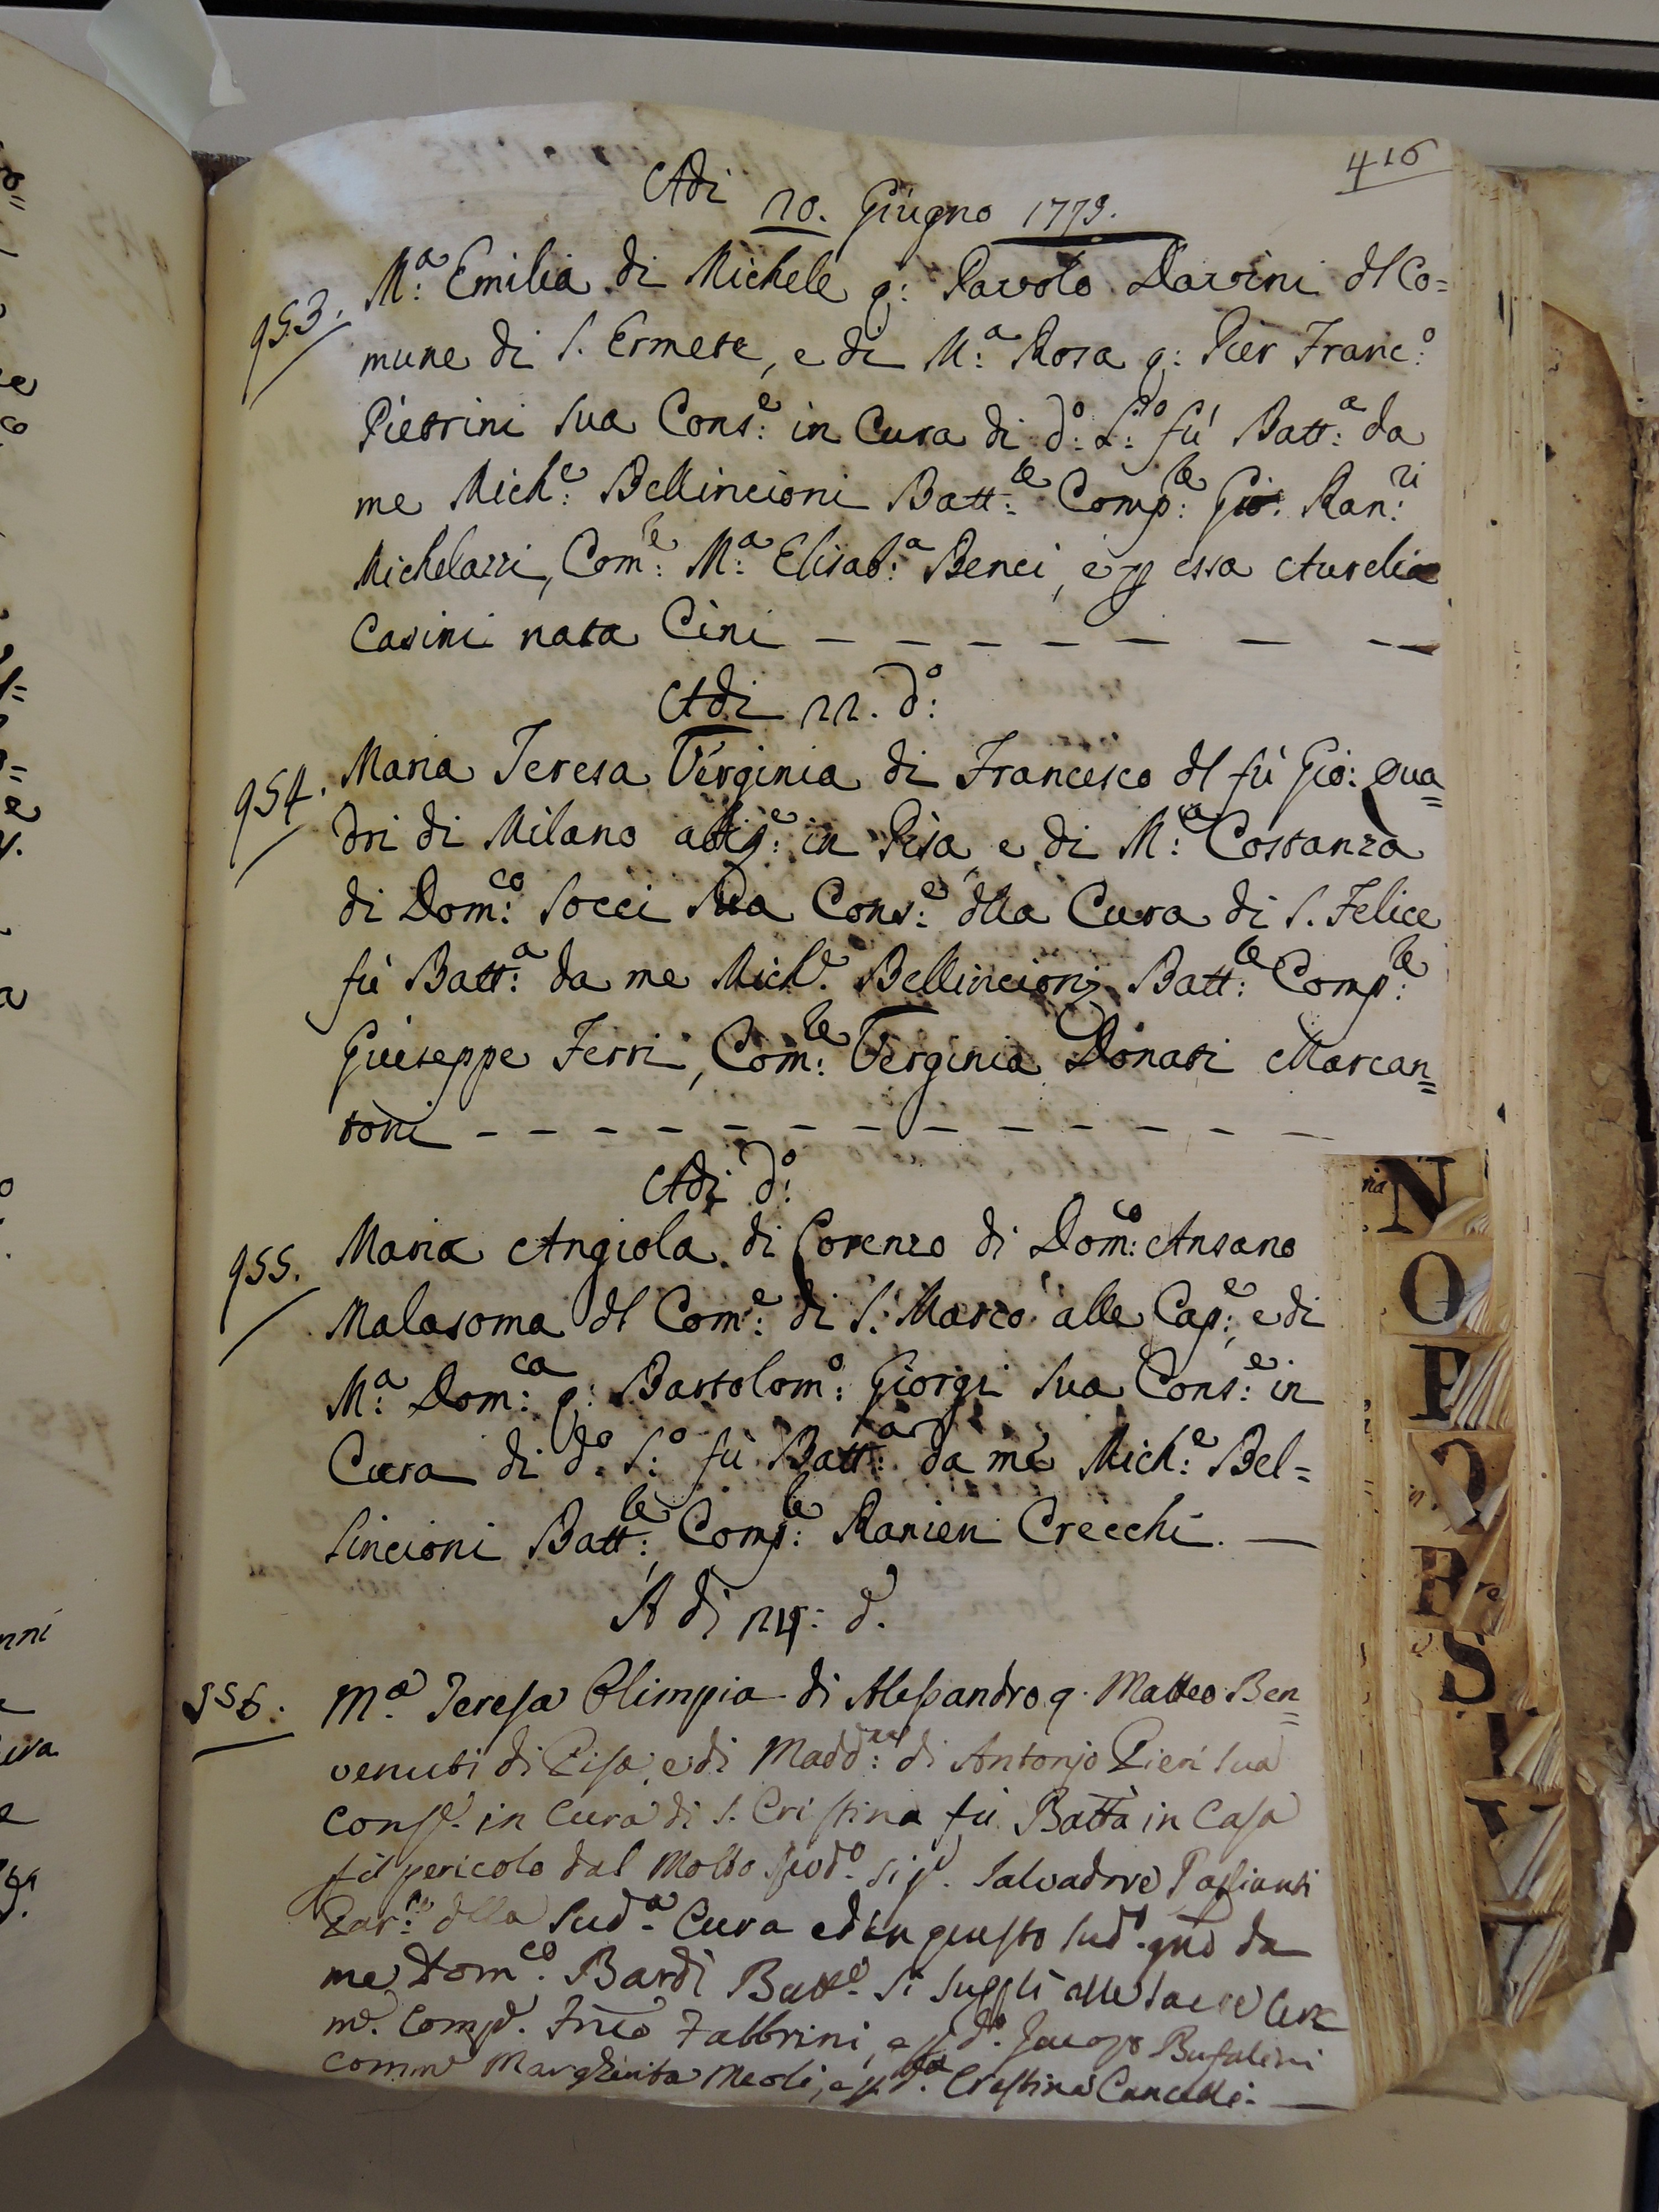 416
Adi 20. Giugno 1779.
953. Mª: Emilia di Michele q: Pavolo Davini dl Co=
mune di S. Ermete, e di M:ª Rosa q: Pier Franc:º
Pietrini sua Cons:e in Cura di d:º S:º fù Batt:ª da
me Mich:e Bellincioni Batt:re Comp:re Gio: Ran:ri
Michelazzi, Com:e M:ª Elisab:ª Benci, e p essa Aurelia
Casini nata Cini — — — — — — — —
Adi 22. d:º
954. Maria Teresa Verginia di Francesco dl fù Gio: Qua=
dri di Milano abit:e in Pisa e di M:ª Costanza
di Dom:co Socci sua Cons:e dlla Cura di S. Felice
fù Batt:ª da me Mich:e Bellincioni Batt:re Comp:re
Giuseppe Ferri, Com:re Verginia Donati Marcan=
toni — — — — — — — — — — — — —
Adi d:º
955. Maria Angiola di Lorenzo di Dom:co Ansano
Malasoma dl Com:e di S. Marco alle Cap:e, e di
M:ª Dom:ca q: Bartolom:º Giorgi sua Cons:e in
Cura di d:º S:º fù Batt:ª da me Mich:e Bel=
lincioni Batt:re, Comp:re Ranieri Crecchi. —
A di 24: d.
956. M.ª Teresa Olimpia di Alessandro q. Matteo Ben=
venuti di Pisa, e di Madd:na di Antonio Pieri sua
Cons.e in Cura di S. Cristina fù Batta in Casa
p il pericolo dal Molto Sig.e Salvadore Passianti
della Sud.ª Cura ed in questo sud. gno da
me Dom.co Bardi Batt.e si supplì alle sacre Cere
m.e Comp.e Frnco Fabbrini, e p d.º Jacopo Bufalini
Comme Margherita Meoli, e p d.ª Crestina Cancelli. —
N
O
P
Q
R
S
T
V